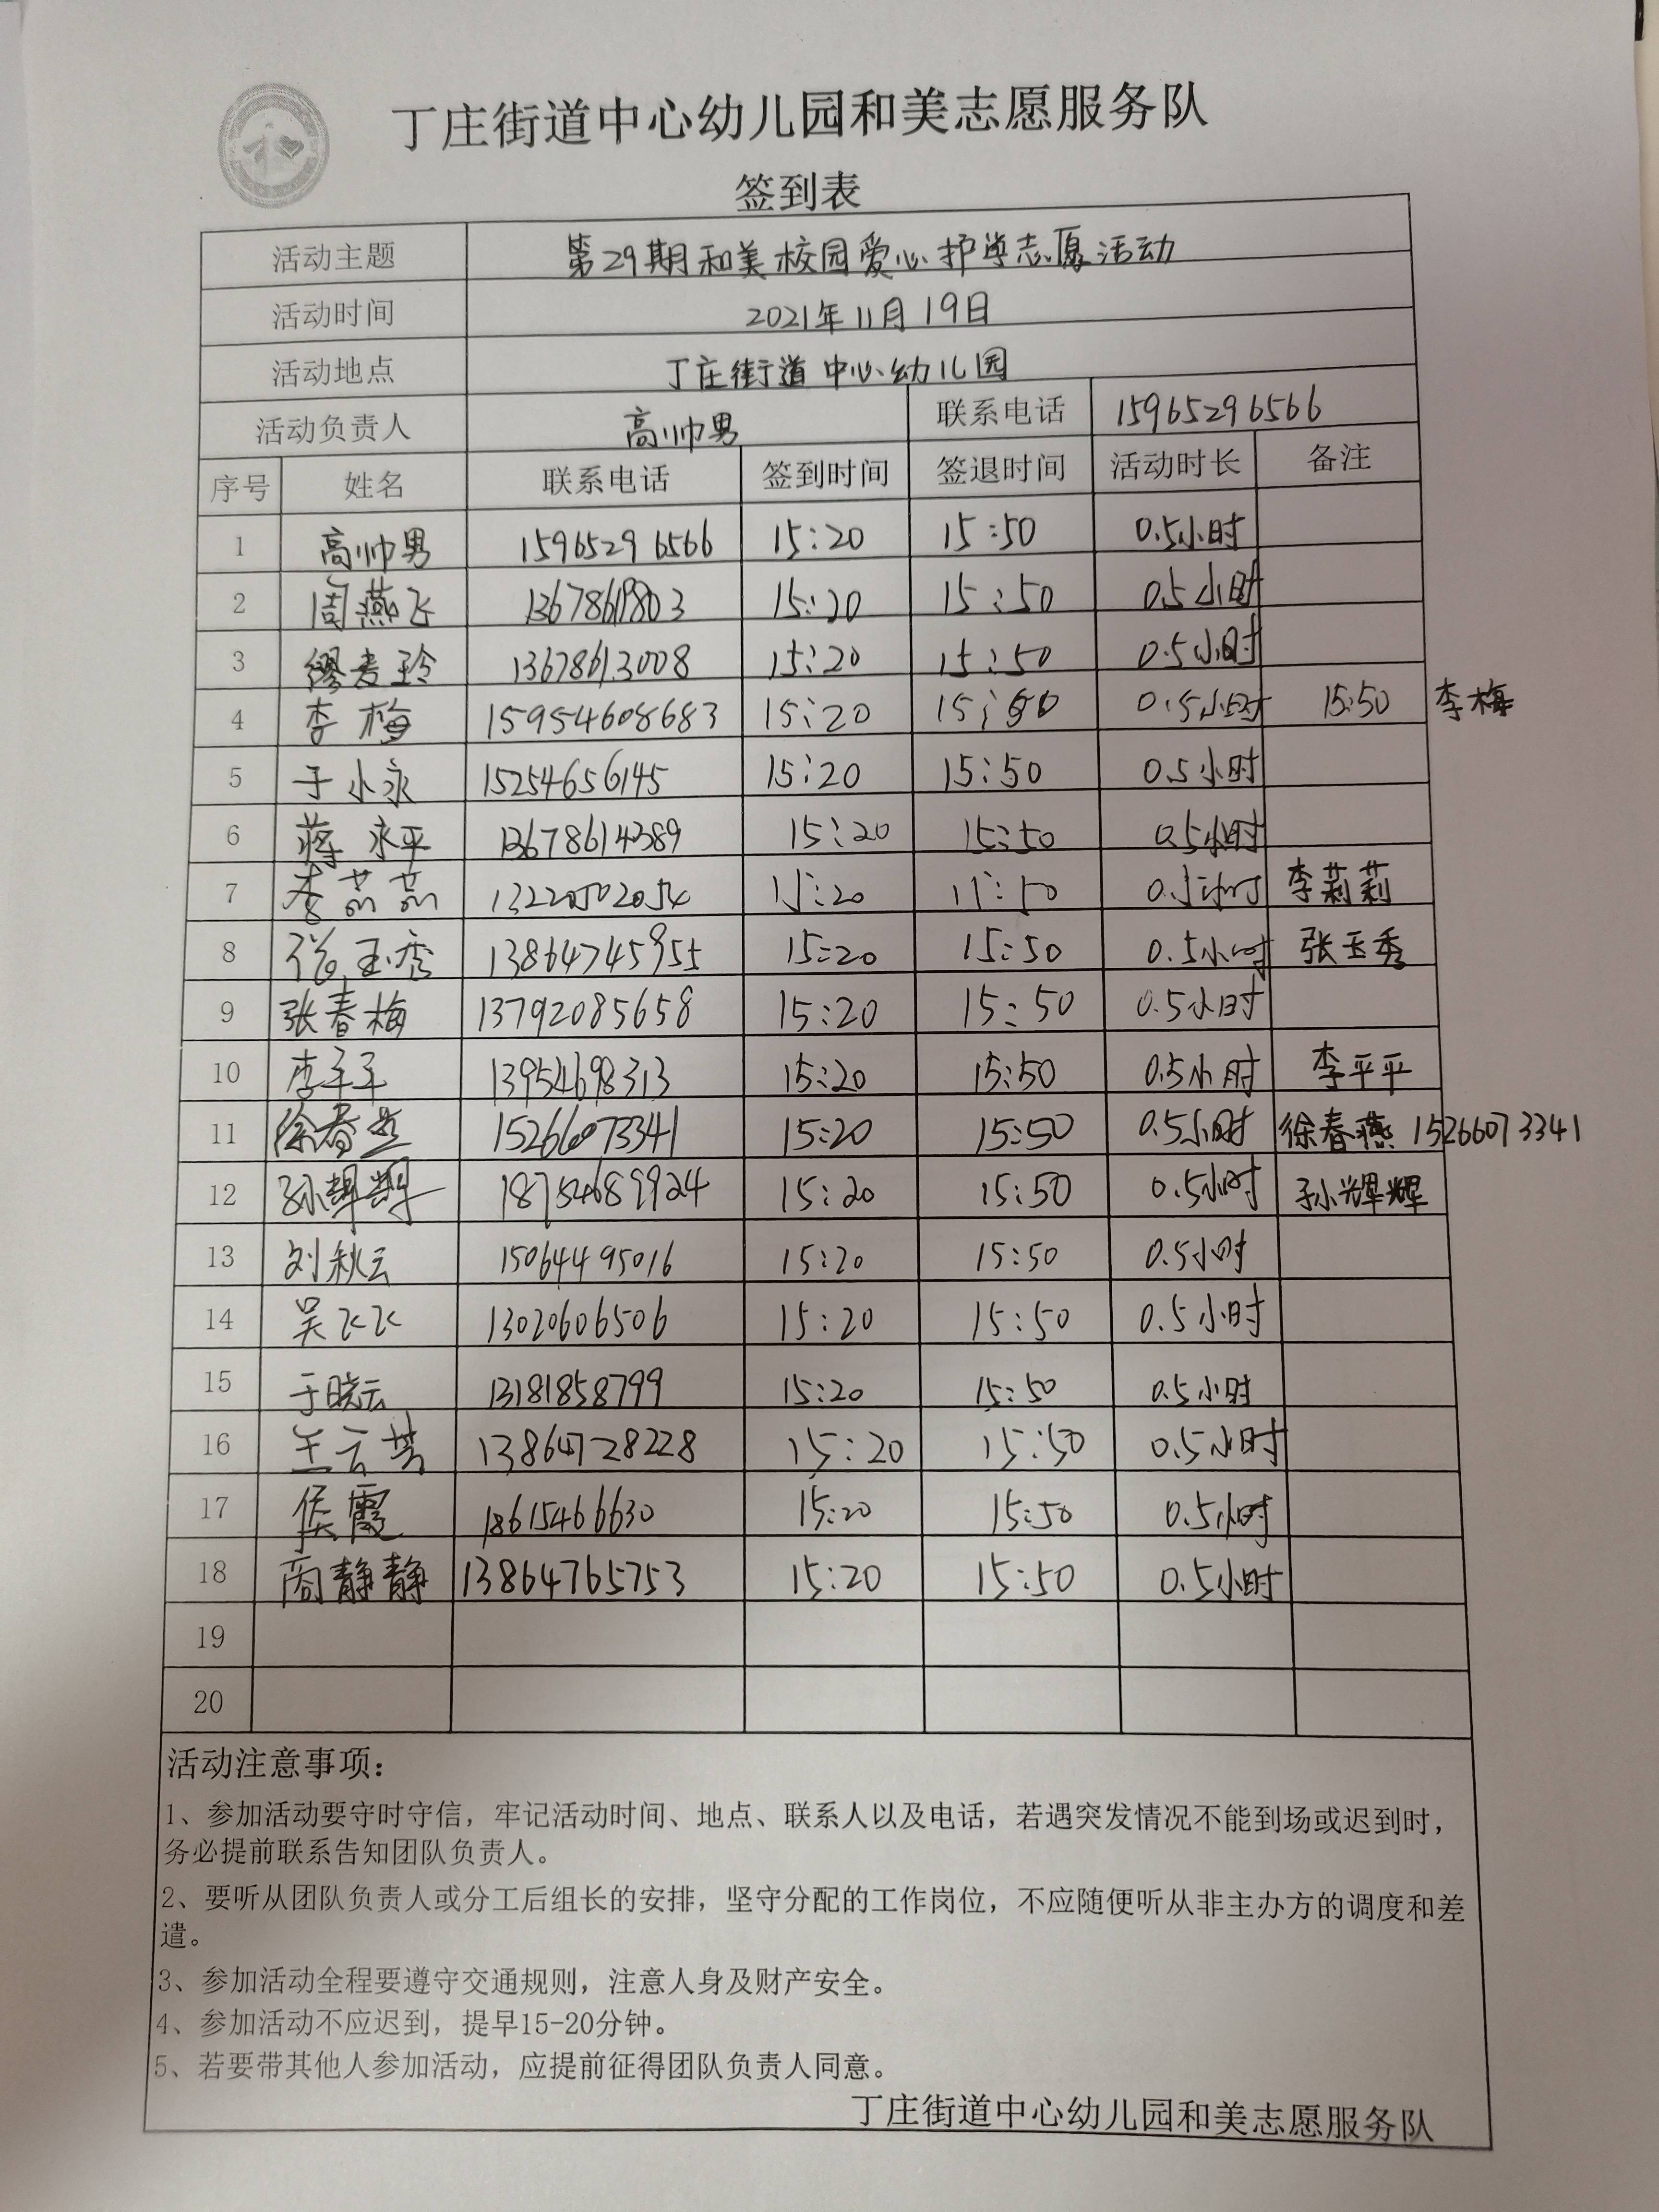 丁庄街道中心幼儿园和美志愿服务队
签到表
活动主题 第29期和美校园爱心护学志愿活动
活动时间 2021年11月19日
活动地点 丁庄街道中心幼儿园
活动负责人 高帅男 联系电话 15965296566
序号 姓名 联系电话 签到时间 签退时间 活动时长 备注
1 高帅男 15965296566 15:20 15:50 0.5小时
2 周燕飞 15:20 15:50 0.5小时
3 缪麦玲 13678613008 15:20 15:50 0.5小时
4 李梅 159954608683 15:20 15:50 0.5小时 15:50 李梅
5 于小永 15254656145 15:20 15:50 0.5小时
6 蒋永平 13678614389 15:20 15:50 0.5小时
7 李莉莉 13220502054 15:20 15:50 0.5小时 李莉莉
8 张玉秀 13864745955 15:20 15:50 0.5小时 张玉秀
9 张春梅 13792085658 15:20 15:50 0.5小时
10 李平平 13954698313 15:20 15:50 0.5小时 李平平
11 徐春燕 15266073341 15:20 15:50 0.5小时 徐春燕 15266073341
12 孙辉辉 18754689924 15:20 15:50 0.5小时 孙辉辉
13 刘秋云 15064495016 15:20 15:50 0.5小时
14 吴飞飞 13020606506 15:20 15:50 0.5小时
15 于晓云 13181858799 15:20 15:50 0.5小时
16 王云芳 13864728228 15:20 15:50 0.5小时
17 侯霞 18615466630 15:20 15:50 0.5小时
18 商静静 13864765753 15:20 15:50 0.5小时
19
20
活动注意事项：
1、参加活动要守时守信，牢记活动时间、地点、联系人以及电话，若遇突发情况不能到场或迟到时，
务必提前联系告知团队负责人。
2、要听从团队负责人或分工后组长的安排，坚守分配的工作岗位，不应随便听从非主办方的调度和差
遣。
3、参加活动全程要遵守交通规则，注意人身及财产安全。
4、参加活动不应迟到，提早15-20分钟。
5、若要带其他人参加活动，应提前征得团队负责人同意。
丁庄街道中心幼儿园和美志愿服务队